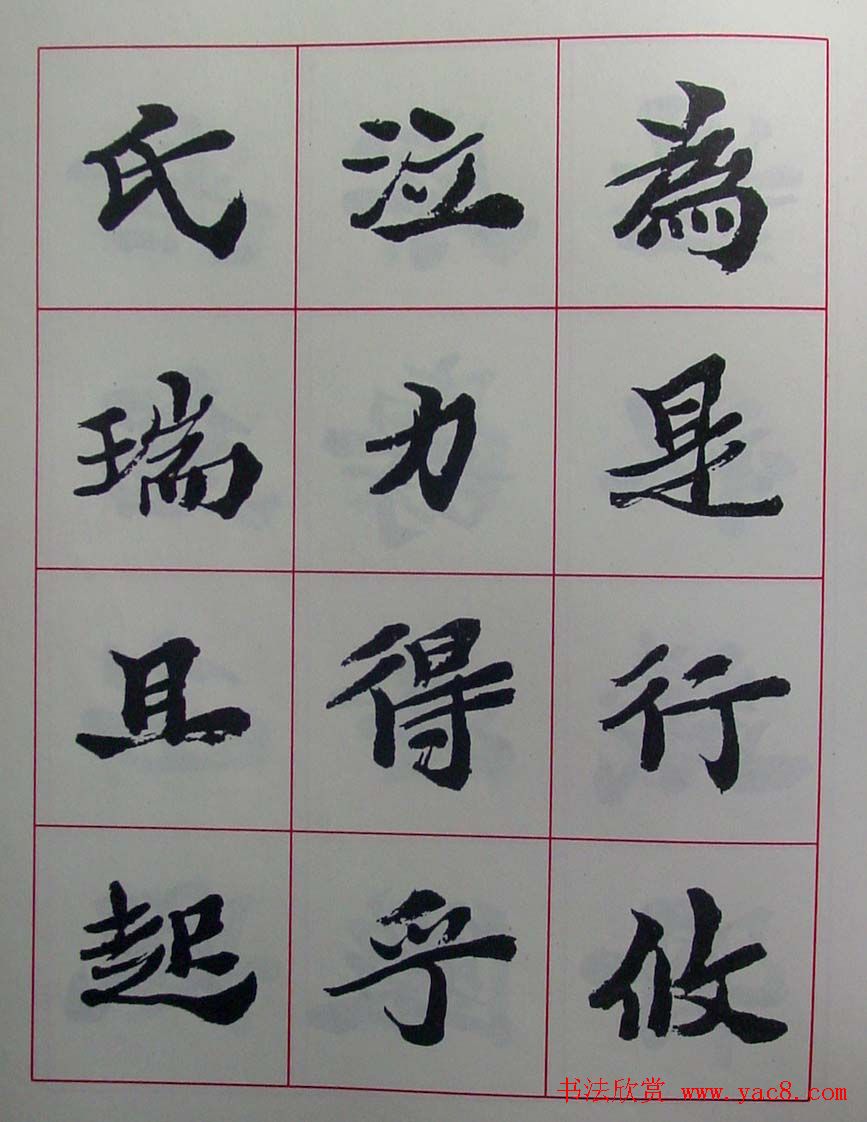 為是行攸
泣力得乎
氏瑞且起
书法欣赏 www.yac8.com